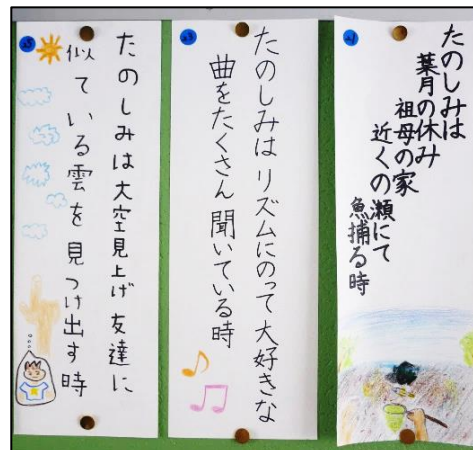 21
たのしみは
葉月の休み
祖母の家
近くの瀬にて
魚捕る時
23
たのしみは リズムにのって 大好きな
曲をたくさん 聞いている時
25
たのしみは 大空見上げ 友達に
似ている雲を 見つけ出す時